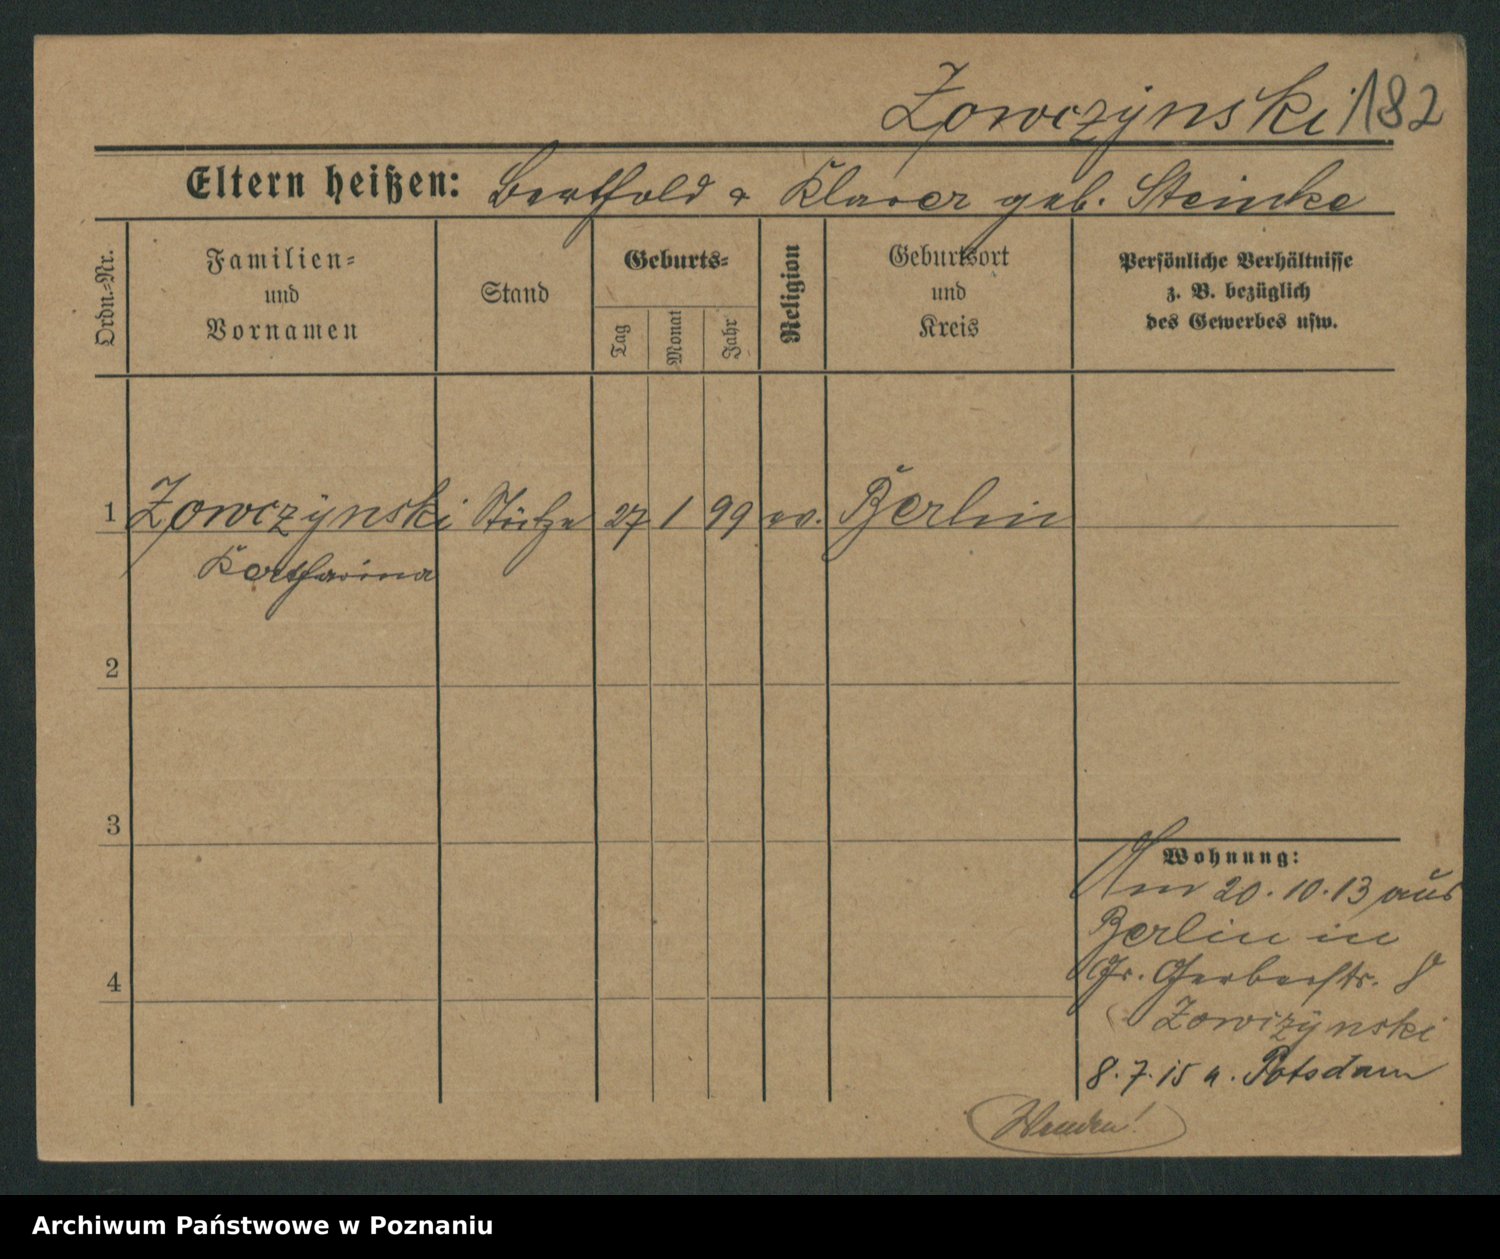 Zowczynski 182
Eltern heißen: Berthold & Klara geb. Steinke
Ordn.-Nr.
Familien-
und
Vornamen
Stand
Geburts-
Tag
Monat
Jahr
Religion
Geburtsort
und
Kreis
Persönliche Verhältnisse
z. B. bezüglich
des Gewerbes usw.
1 Zowczynski Stütze 27 1 99 ev. Berlin
Katharina
2
3
Wohnung:
Am 20.10.13 aus
Berlin in
Gr. Gerberstr. 8
Zowczynski
4
8.7.15 n. Potsdam
Wenden!
Archiwum Państwowe w Poznaniu